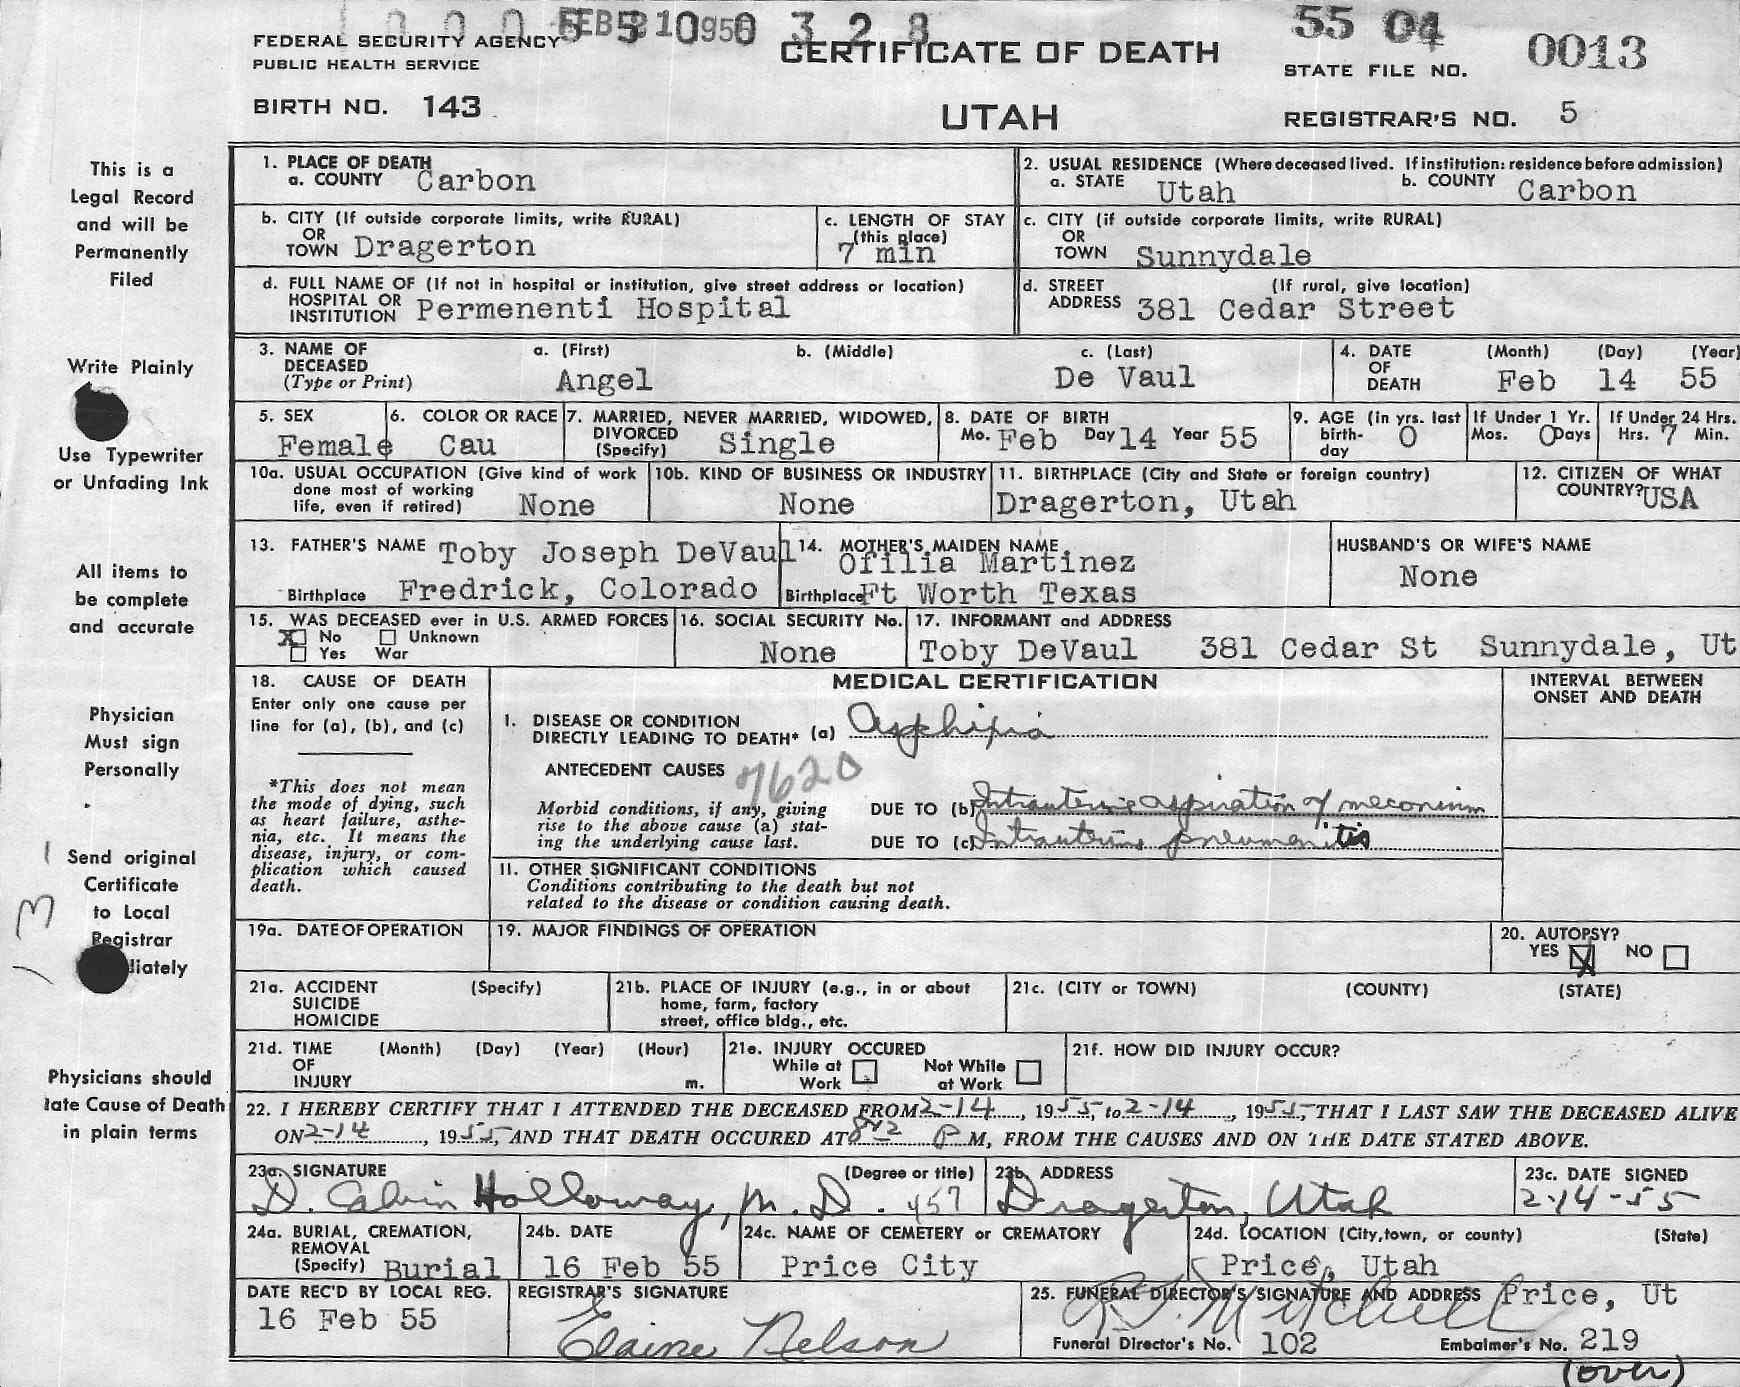 FEDERAL SECURITY AGENCY
PUBLIC HEALTH SERVICE
BIRTH NO. 143
CERTIFICATE OF DEATH
UTAH
55 04
STATE FILE NO. 0013
REGISTRAR'S NO. 5
This is a
Legal Record
and will be
Permanently
Filed
Write Plainly
Use Typewriter
or Unfading Ink
All items to
be complete
and accurate
Physician
Must sign
Personally
Send original
Certificate
to Local
Registrar
diately
Physicians should
tate Cause of Death
in plain terms
1. PLACE OF DEATH
a. COUNTY Carbon
2. USUAL RESIDENCE (Where deceased lived. If institution: residence before admission)
a. STATE Utah b. COUNTY Carbon
b. CITY (If outside corporate limits, write RURAL)
OR
TOWN Dragerton
c. LENGTH OF STAY
(this place)
7 min
c. CITY (if outside corporate limits, write RURAL)
OR
TOWN Sunnydale
d. FULL NAME OF (If not in hospital or institution, give street address or location)
HOSPITAL OR
INSTITUTION Permenenti Hospital
d. STREET (If rural, give location)
ADDRESS 381 Cedar Street
3. NAME OF a. (First) b. (Middle) c. (Last)
DECEASED
(Type or Print) Angel De Vaul
4. DATE (Month) (Day) (Year)
OF
DEATH Feb 14 55
5. SEX
Female
6. COLOR OR RACE
Cau
7. MARRIED, NEVER MARRIED, WIDOWED,
DIVORCED
(Specify) Single
8. DATE OF BIRTH
Mo. Feb Day 14 Year 55
9. AGE (in yrs. last
birth-
day 0
If Under 1 Yr.
Mos. 0 Days
If Under 24 Hrs.
Hrs. 7 Min.
10a. USUAL OCCUPATION (Give kind of work
done most of working
life, even if retired) None
10b. KIND OF BUSINESS OR INDUSTRY
None
11. BIRTHPLACE (City and State or foreign country)
Dragerton, Utah
12. CITIZEN OF WHAT
COUNTRY? USA
13. FATHER'S NAME Toby Joseph DeVaul
Birthplace Fredrick, Colorado
14. MOTHER'S MAIDEN NAME
Ofilia Martinez
Birthplace Ft Worth Texas
HUSBAND'S OR WIFE'S NAME
None
15. WAS DECEASED ever in U.S. ARMED FORCES
X No Unknown
Yes War
16. SOCIAL SECURITY No.
None
17. INFORMANT and ADDRESS
Toby DeVaul 381 Cedar St Sunnydale, Ut
18. CAUSE OF DEATH
Enter only one cause per
line for (a), (b), and (c)
*This does not mean
the mode of dying, such
as heart failure, asthe-
nia, etc. It means the
disease, injury, or com-
plication which caused
death.
MEDICAL CERTIFICATION
INTERVAL BETWEEN
ONSET AND DEATH
I. DISEASE OR CONDITION
DIRECTLY LEADING TO DEATH* (a) Asphixia
ANTECEDENT CAUSES 7620
Morbid conditions, if any, giving
rise to the above cause (a) stat-
ing the underlying cause last.
DUE TO (b) Intrauterine aspiration of meconium
DUE TO (c) Intrauterine pneumonitis
11. OTHER SIGNIFICANT CONDITIONS
Conditions contributing to the death but not
related to the disease or condition causing death.
19a. DATE OF OPERATION
19. MAJOR FINDINGS OF OPERATION
20. AUTOPSY?
YES X NO
21a. ACCIDENT (Specify)
SUICIDE
HOMICIDE
21b. PLACE OF INJURY (e.g., in or about
home, farm, factory
street, office bldg., etc.
21c. (CITY or TOWN) (COUNTY) (STATE)
21d. TIME (Month) (Day) (Year) (Hour)
OF
INJURY m.
21e. INJURY OCCURED
While at Not While
Work at Work
21f. HOW DID INJURY OCCUR?
22. I HEREBY CERTIFY THAT I ATTENDED THE DECEASED FROM 2-14, 1955, to 2-14, 1955, THAT I LAST SAW THE DECEASED ALIVE
ON 2-14, 1955, AND THAT DEATH OCCURED AT 842 P M, FROM THE CAUSES AND ON THE DATE STATED ABOVE.
23a. SIGNATURE (Degree or title)
D. Calvin Holloway, M.D. 457
23b. ADDRESS
Dragerton, Utah
23c. DATE SIGNED
2-14-55
24a. BURIAL, CREMATION,
REMOVAL
(Specify) Burial
24b. DATE
16 Feb 55
24c. NAME OF CEMETERY or CREMATORY
Price City
24d. LOCATION (City, town, or county) (State)
Price, Utah
DATE REC'D BY LOCAL REG.
16 Feb 55
REGISTRAR'S SIGNATURE
Elaine Nelson
25. FUNERAL DIRECTOR'S SIGNATURE AND ADDRESS Price, Ut
Mitchell
Funeral Director's No. 102 Embalmer's No. 219
(over)